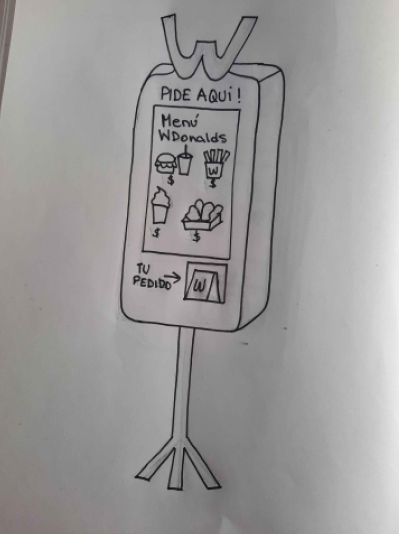 W
PIDE AQUÍ!
Menú
WDonalds
$
W
$
$
$
TU
PEDIDO
W